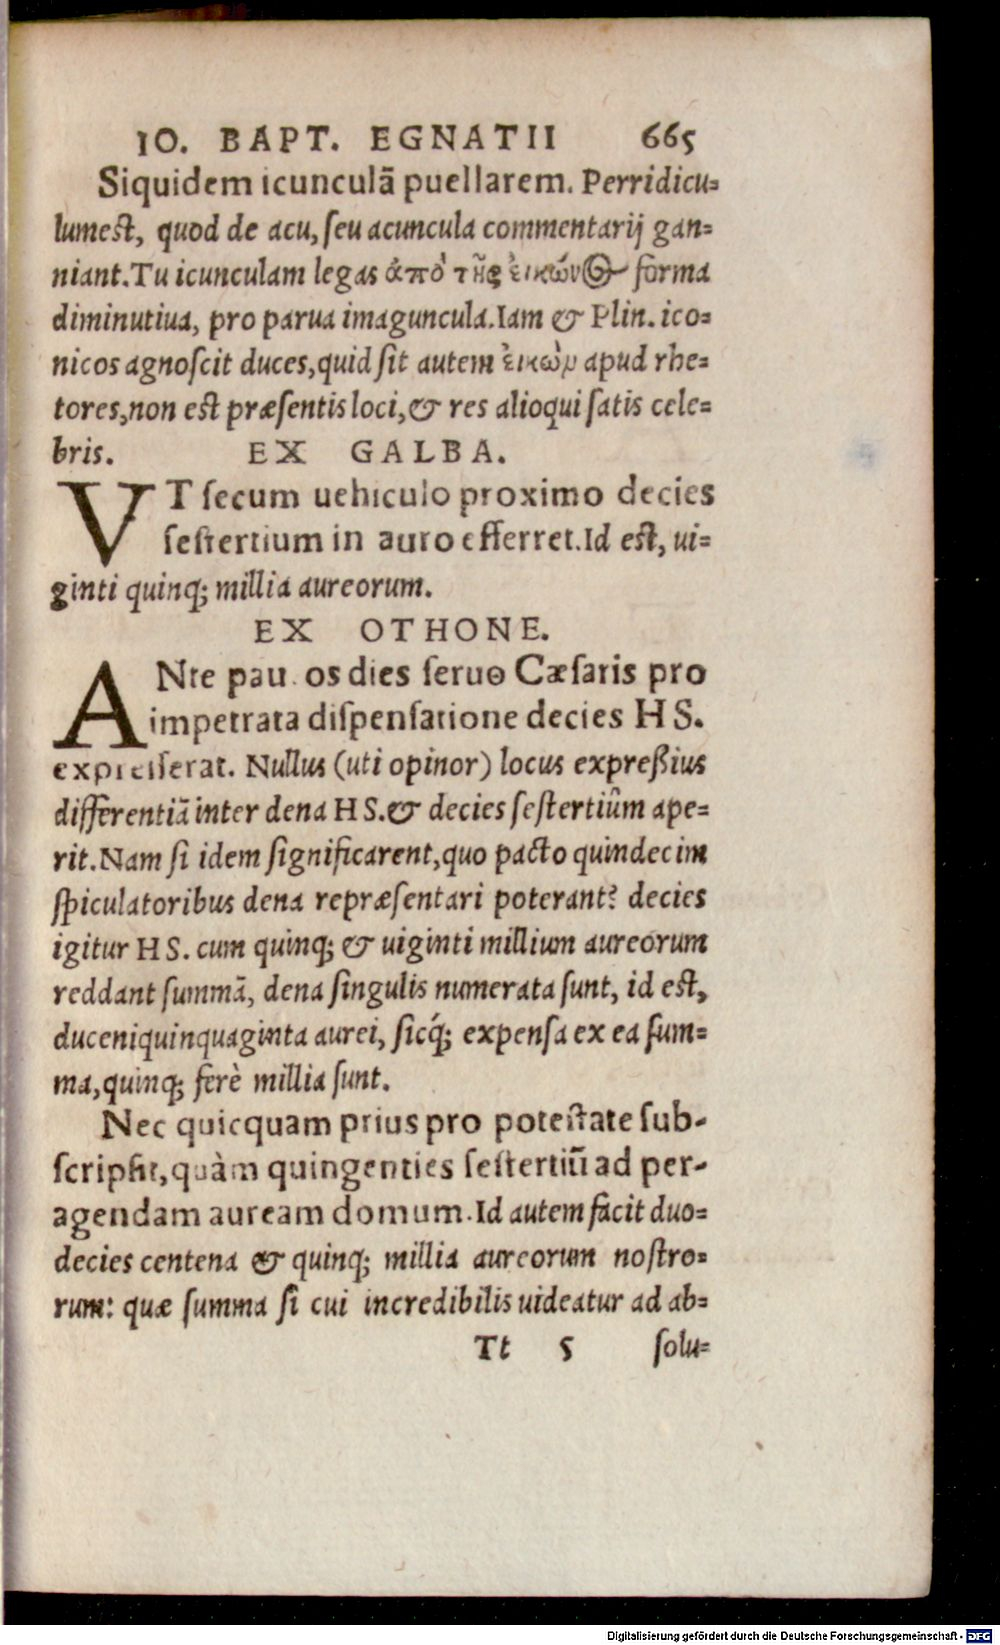 IO. BAPT. EGNATII 665
Siquidem icunculā puellarem. Perridicu=
lumest, quod de acu, seu acuncula commentarij gan=
niant. Tu icunculam legas ἀπὸ τῆς ἐικών@ forma
diminutiua, pro parua imaguncula. Iam & Plin. ico=
nicos agnoscit duces, quid sit autem ἐικὼν apud rhe=
tores, non est præsentis loci, & res alioqui satis cele=
bris. EX GALBA.
VT secum uehiculo proximo decies
sestertium in auro efferret. Id est, ui=
ginti quinq; millia aureorum.
EX OTHONE.
ANte pau os dies seruo Cæsaris pro
impetrata dispensatione decies HS.
expresserat. Nullus (uti opinor) locus expreßius
differentiā inter dena HS. & decies sestertiûm ape=
rit. Nam si idem significarent, quo pacto quindecim
spiculatoribus dena repræsentari poterant? decies
igitur HS. cum quinq; & uiginti millium aureorum
reddant summā, dena singulis numerata sunt, id est,
duceniquinquaginta aurei, sicq́; expensa ex ea sum=
ma, quinq; ferè millia sunt.
Nec quicquam prius pro potestate sub-
scripsit, quàm quingenties sestertiū ad per-
agendam auream domum. Id autem facit duo=
decies centena & quinq; millia aureorum nostro=
rum: quæ summa si cui incredibilis uideatur ad ab=
Tt 5 solu=
Digitalisierung gefördert durch die Deutsche Forschungsgemeinschaft - DFG